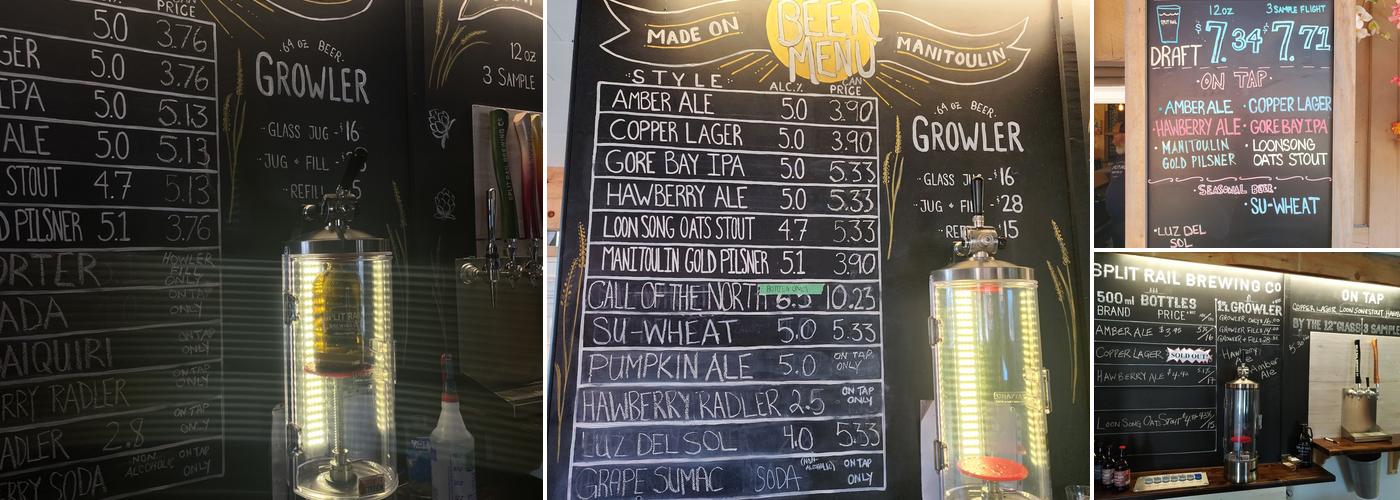 5.0 3.76
GER 5.0 3.76
IPA 5.0 5.13
ALE 5.0 5.13
STOUT 4.7 5.13
D PILSNER 5.1 3.76
ORTER HOWLER FILL ONLY
ADA ON TAP ONLY
AIQUIRI ON TAP ONLY
RRY RADLER ON TAP ONLY
ADLER 2.8 ON TAP ONLY
RRY SODA NON ALCOHOLIC ON TAP ONLY
64 OZ BEER
GROWLER
GLASS JUG - $16
JUG + FILL - $
REFILL
12 oz
3 SAMPLE
MADE ON BEER MENU MANITOULIN
STYLE ALC.% CAN PRICE
AMBER ALE 5.0 3.90
COPPER LAGER 5.0 3.90
GORE BAY IPA 5.0 5.33
HAWBERRY ALE 5.0 5.33
LOON SONG OATS STOUT 4.7 5.33
MANITOULIN GOLD PILSNER 5.1 3.90
CALL OF THE NORTH 6.5 10.23
SU-WHEAT 5.0 5.33
PUMPKIN ALE 5.0 ON TAP ONLY
HAWBERRY RADLER 2.5 ON TAP ONLY
LUZ DEL SOL 4.0 5.33
GRAPE SUMAC SODA (NON-ALCOHOLIC) ON TAP ONLY
64 OZ BEER
GROWLER
GLASS JUG - $16
JUG + FILL - $28
REFILL $15
12oz 3 SAMPLE FLIGHT
DRAFT $7.34 $7.71
ON TAP
AMBER ALE COPPER LAGER
HAWBERRY ALE GORE BAY IPA
MANITOULIN GOLD PILSNER LOONSONG OATS STOUT
SEASONAL BEER
SU-WHEAT
LUZ DEL SOL
SPLIT RAIL BREWING CO
500 ml BOTTLES
BRAND PRICE
AMBER ALE $3.95
COPPER LAGER SOLD OUT!
HAWBERRY ALE $4.42
LOON SONG OATS STOUT
GROWLER
ON TAP
COPPER LAGER LOONSONG STOUT HAWB
BY THE 12oz GLASS 3 SAMPL
Amber Ale